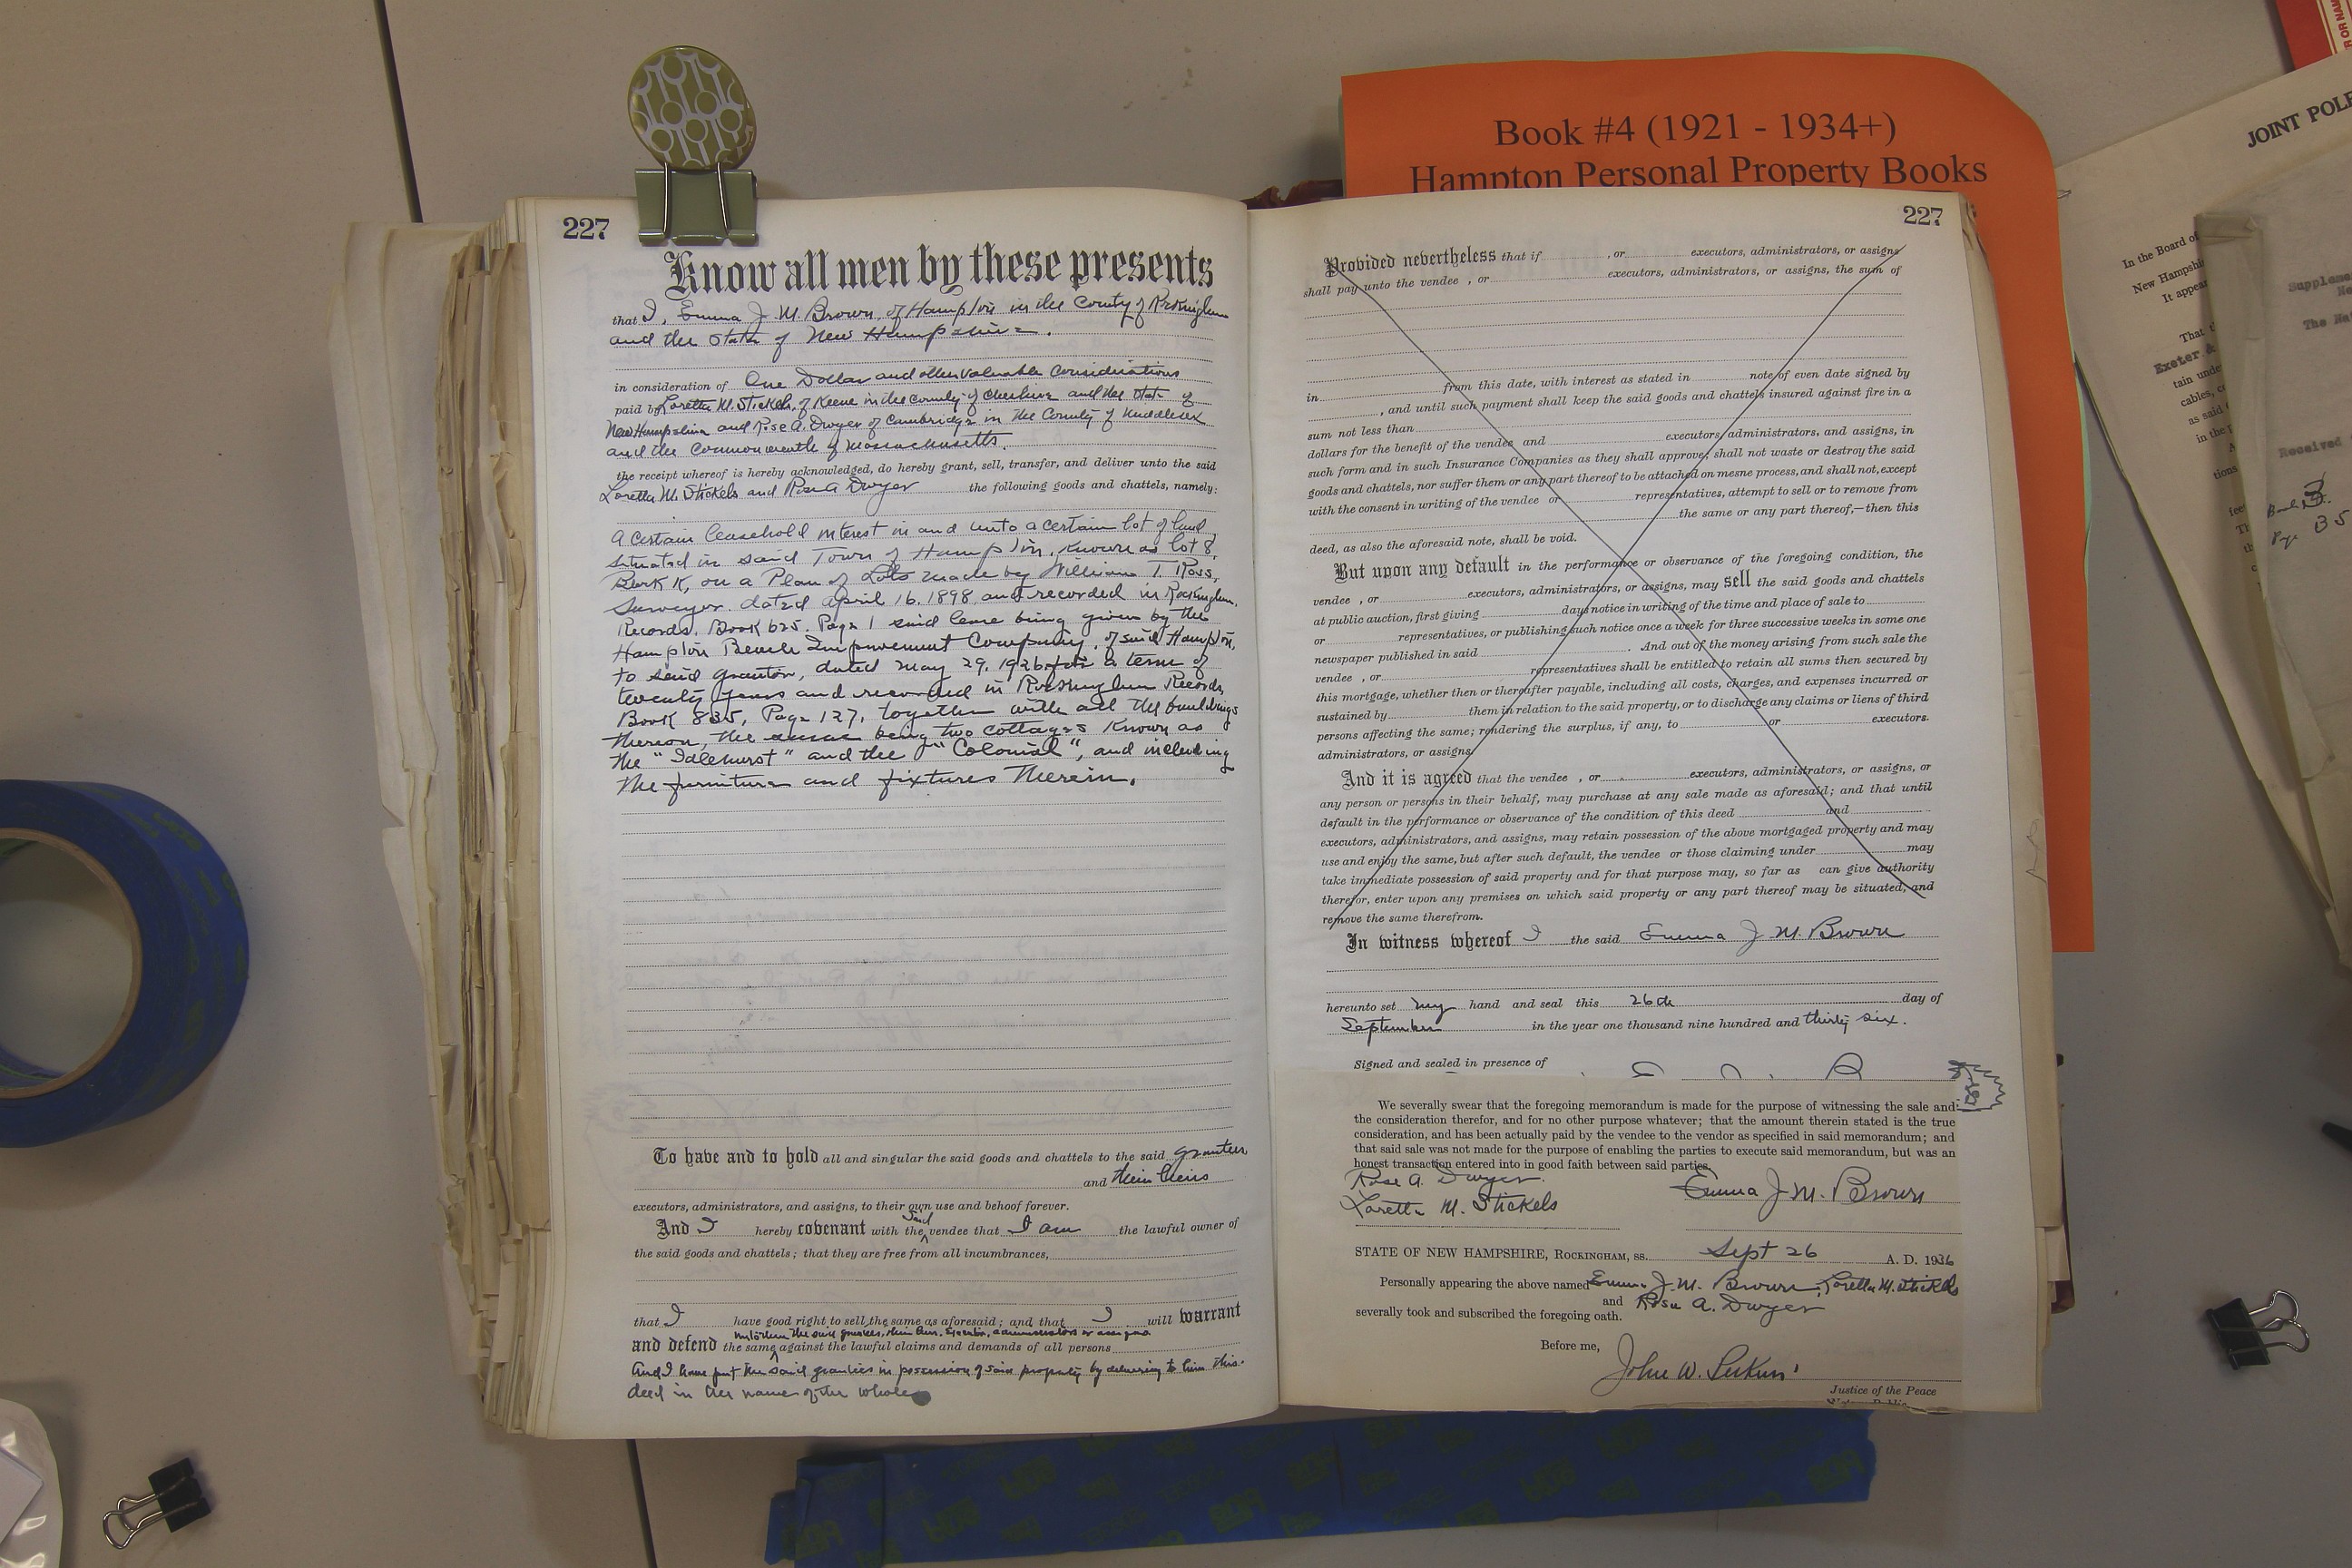 Book #4 (1921 - 1934+)
Hampton Personal Property Books
JOINT POLE
In the Board of
New Hampshi
It appear
That
Exeter &
tain unde
cables, c
as said
in the p
tions
Supplem
Received
Book 3.
Page 35
OR NAM
227
Know all men by these presents
that I, Emma J. M. Brown, of Hampton in the County of Rockingham
and the State of New Hampshire.
in consideration of One Dollar and other valuable considerations
paid by Loretta M. Stickels, of Keene in the County of Cheshire and the State of
New Hampshire and Rose A. Dwyer of Cambridge in the County of Middlesex
and the Commonwealth of Massachusetts.
the receipt whereof is hereby acknowledged, do hereby grant, sell, transfer, and deliver unto the said
Loretta M. Stickels and Rose A Dwyer the following goods and chattels, namely:
A certain leasehold interest in and unto a certain lot of land,
situated in said Town of Hampton, known as lot 8,
Block K, on a Plan of Lots made by William T. Ross,
Surveyor. dated April 16. 1898 and recorded in Rockingham
Records, Book 625. Page 1 said lease being given by the
Hampton Beach Improvement Company, of said Hampton,
to said grantor, dated May 29, 1926 for a term of
twenty years and recorded in Rockingham Records,
Book 835, Page 127, together with all the buildings
thereon, the same being two cottages known as
the "Idlehurst" and the "Colonial", and including
the furniture and fixtures therein.
To have and to hold all and singular the said goods and chattels to the said grantees,
and their heirs
executors, administrators, and assigns, to their own use and behoof forever.
said
And I hereby covenant with the vendee that I am the lawful owner of
the said goods and chattels; that they are free from all incumbrances,
that I have good right to sell the same as aforesaid; and that I will warrant
unto them the said grantees, their heirs, executors, administrators or assigns
and defend the same against the lawful claims and demands of all persons
And I have put the said grantees in possession of said property by delivering to them this
deed in the name of the whole
227
Provided nevertheless that if , or executors, administrators, or assigns
shall pay unto the vendee , or executors, administrators, or assigns, the sum of
from this date, with interest as stated in note of even date signed by
in , and until such payment shall keep the said goods and chattels insured against fire in a
sum not less than
dollars for the benefit of the vendee and executors, administrators, and assigns, in
such form and in such Insurance Companies as they shall approve; shall not waste or destroy the said
goods and chattels, nor suffer them or any part thereof to be attached on mesne process, and shall not, except
with the consent in writing of the vendee or representatives, attempt to sell or to remove from
the same or any part thereof,—then this
deed, as also the aforesaid note, shall be void.
But upon any default in the performance or observance of the foregoing condition, the
vendee , or executors, administrators, or assigns, may sell the said goods and chattels
at public auction, first giving days notice in writing of the time and place of sale to
or representatives, or publishing such notice once a week for three successive weeks in some one
newspaper published in said . And out of the money arising from such sale the
vendee , or representatives shall be entitled to retain all sums then secured by
this mortgage, whether then or thereafter payable, including all costs, charges, and expenses incurred or
sustained by them in relation to the said property, or to discharge any claims or liens of third
persons affecting the same; rendering the surplus, if any, to or executors.
administrators, or assigns.
And it is agreed that the vendee , or executors, administrators, or assigns, or
any person or persons in their behalf, may purchase at any sale made as aforesaid; and that until
default in the performance or observance of the condition of this deed and
executors, administrators, and assigns, may retain possession of the above mortgaged property and may
use and enjoy the same, but after such default, the vendee or those claiming under may
take immediate possession of said property and for that purpose may, so far as can give authority
therefor, enter upon any premises on which said property or any part thereof may be situated, and
remove the same therefrom.
In witness whereof I the said Emma J. M. Brown
hereunto set my hand and seal this 26th day of
September in the year one thousand nine hundred and thirty six.
Signed and sealed in presence of
We severally swear that the foregoing memorandum is made for the purpose of witnessing the sale and
the consideration therefor, and for no other purpose whatever; that the amount therein stated is the true
consideration, and has been actually paid by the vendee to the vendor as specified in said memorandum; and
that said sale was not made for the purpose of enabling the parties to execute said memorandum, but was an
honest transaction entered into in good faith between said parties.
Rose A. Dwyer.
Emma J. M. Brown
Loretta M. Stickels
STATE OF NEW HAMPSHIRE, ROCKINGHAM, SS. Sept 26 A. D. 1936
Personally appearing the above named Emma J. M. Brown, Loretta M. Stickels
and Rose A. Dwyer
severally took and subscribed the foregoing oath.
Before me,
John W. Perkins
Justice of the Peace